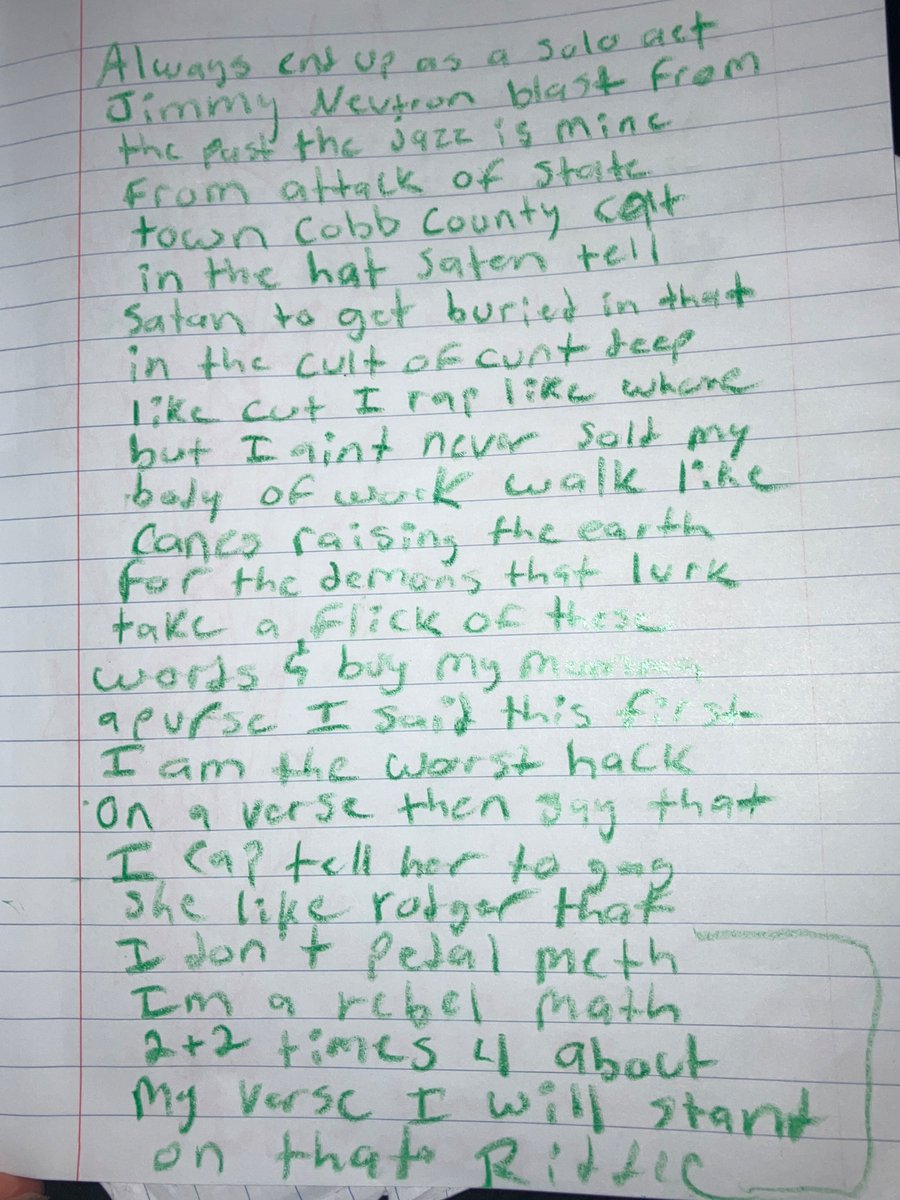 Always end up as a solo act
Jimmy Neutron blast from
the past the jazz is mine
from attack of state
town Cobb County cat
in the hat saten tell
satan to get buried in that
in the cult of cunt deep
like cut I rap like whore
but I aint never sold my
body of work walk like
canes raising the earth
for the demons that lurk
take a flick of these
words & buy my
a purse I said this first
I am the worst hack
on a verse then say that
I cap tell her to gag
she like rodger that
I don't pedal meth
Im a rebel math
2+2 times 4 about
my verse I will stand
on that